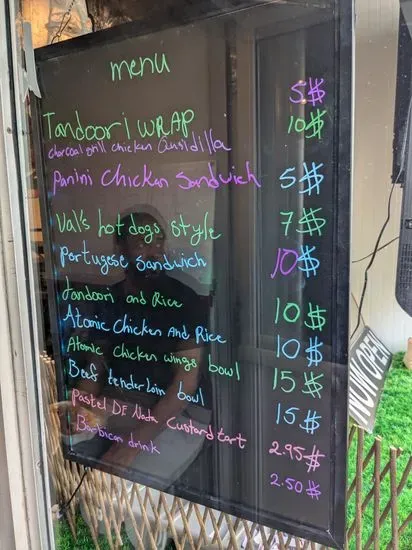 menu
Tandoori WRAP 5$
charcoal grill chicken Quisidilla 10$
Panini Chicken Sandwich 5$
Val's hotdogs style 7$
Portugese Sandwich 10$
Tandoori and Rice 10$
Atomic Chicken And Rice 10$
Atomic Chicken wings bowl 15$
Beef tenderloin bowl 15$
Pastel DE Nata Custard tart 2.95$
Barbican drink 2.50$
NOW OPEN